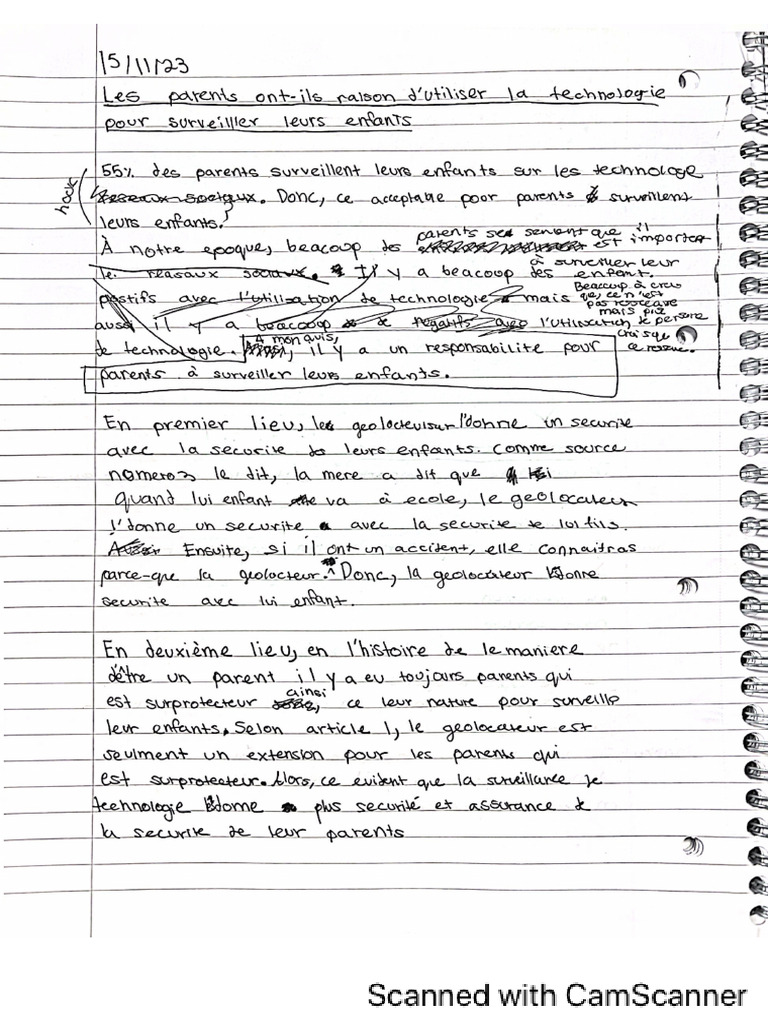 15/11/23
Les parents ont-ils raison d'utiliser la technologie
pour surveiller leurs enfants
hook
55% des parents surveillent leurs enfants sur les technologe
reseaux sociaux. Donc, ce acceptable poor parents surveillent
leurs enfants.
parents servient que il
À notre epoque, beacoup des est important
à surveiller leur
le reasaux sociaux. Il y a beacoup des enfant.
Beaucoup à creu
que, ce n'est
pas
postifs avec l'utilisation de technologie mais
mais plus
aussi il y a beacoup de negatifs avec l'utilisation de persone
crois que
ce
À mon avis,
de technologie. il y a un responsabilite pour
parents à surveiller leurs enfants.
En premier lieu, les geolocteurser l'donne un securite
avec la securite de leurs enfants. Comme source
nomero 3 le dit, la mere a dit que
quand lui enfant va à ecole, le geolocateur
l'donne un securite avec la securite de lui fils.
Ensuite, si il ont un accident, elle connaitras
parce-que la geolocteur. Donc, la geolocateur donne
securite avec lui enfant.
En deuxième lieu, en l'histoire de le maniere
d'être un parent il y a eu toujours parents qui
ainsi
est surprotecteur, ce leur nature pour surveille
leur enfants. Selon article 1, le geolocateur est
seulment un extension pour les parents qui
est surprotecteur. Alors, ce evident que la surveillance de
technologie donne plus securité et assurance de
la securite de leur parents
Scanned with CamScanner